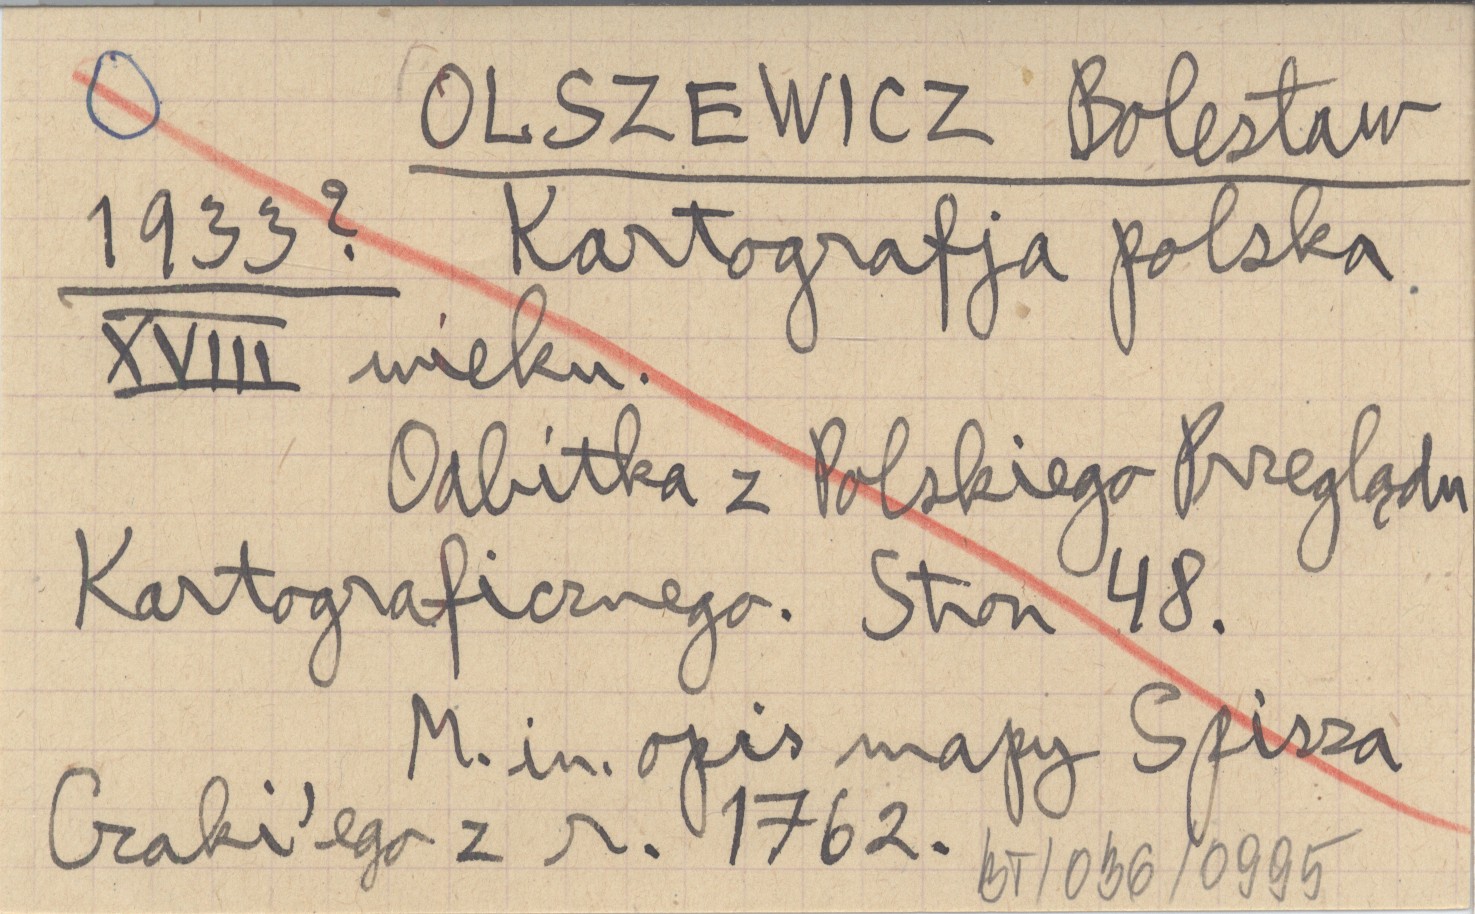 OLSZEWICZ Bolesław
1933? Kartografja polska
XVIII wieku.
Odbitka z Polskiego Przeglądu
Kartograficznego. Stron 48.
M. in. opis mapy Spisza
Czaki'ego z r. 1762.
BT/036/0995